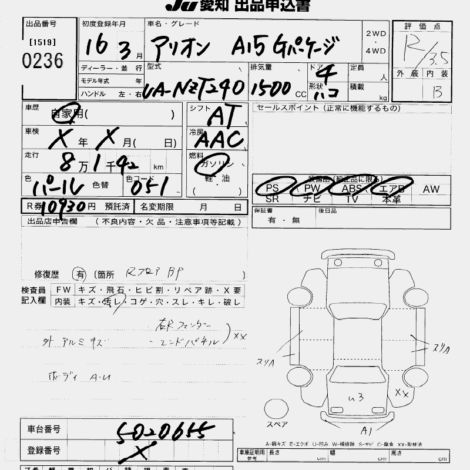 JU 愛知 出品申込書
[1519]
0236
初度登録年月
16年 3月
車名・グレード
アリオン A15 Gパッケージ
2WD
4WD
評価点
R/3.5
外装 内装
B
ディーラー・並行
モデル年式
ハンドル 左・右
型式
UA-NZT240
排気量
1500CC
ドア 4
形状 ハコ
定員 人
積載 kg
車歴
自家用( )
シフト AT
セールスポイント(正常に機能するもの)
車検
X年 X月 日
冷房 AAC
走行
8万1千42 km
燃料
ガソリン
軽・油
色 パール 色替
色コード 051
PS PW ABS エアB AW
SR ナビ TV 本革
R券 10930円 預託済
名変期限 月 日
保証書
有・無
後日品
出品店申告欄 (不良内容・欠品・注意事項等記載)
修復歴 有 (箇所 Rフロア BP
検査員記入欄
FW キズ・飛石・ヒビ割・リペア跡・X要
内装 キズ・汚レ・コゲ・穴・スレ・キレ・破レ
右Rフェンダー
エンドパネル XX
外 アルミキズ
ボディ A-U
スリA
スリA
U3
XX
スペア
A1
車台番号
5020655
登録番号
X
車庫証明用参考
長さ cm
幅 cm
高さ cm